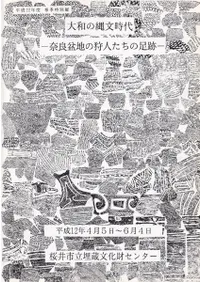 平成12年度 春季特別展
大和の縄文時代
―奈良盆地の狩人たちの足跡―
平成12年4月5日～6月4日
桜井市立埋蔵文化財センター